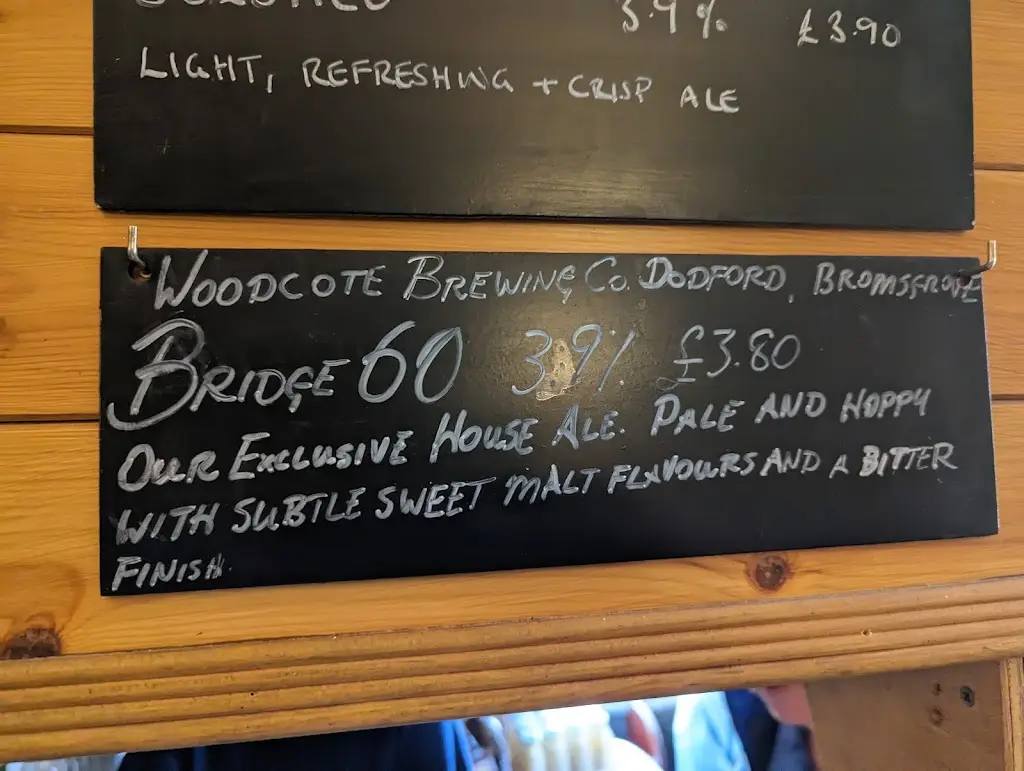 3.9% £3.90
LIGHT, REFRESHING + CRISP ALE
WOODCOTE BREWING CO. DODFORD, BROMSGROVE
BRIDGE 60 3.9% £3.80
OUR EXCLUSIVE HOUSE ALE. PALE AND HOPPY
WITH SUBTLE SWEET MALT FLAVOURS AND A BITTER
FINISH.